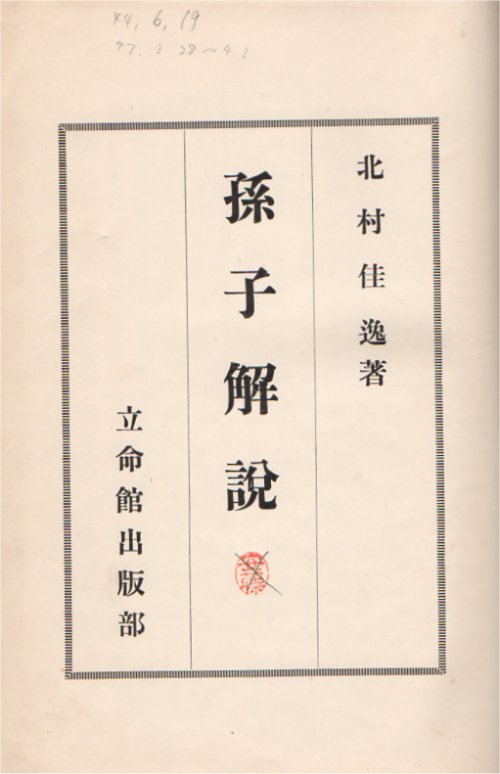 44, 6, 19
47. 3 28～4.3
北村佳逸著
孫子解說
立命館出版部